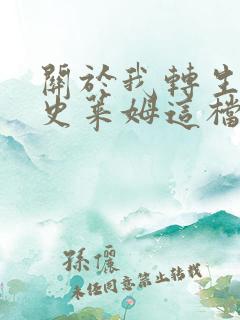 關於我轉生
史萊姆這檔
孫儷
未經同意禁止轉載